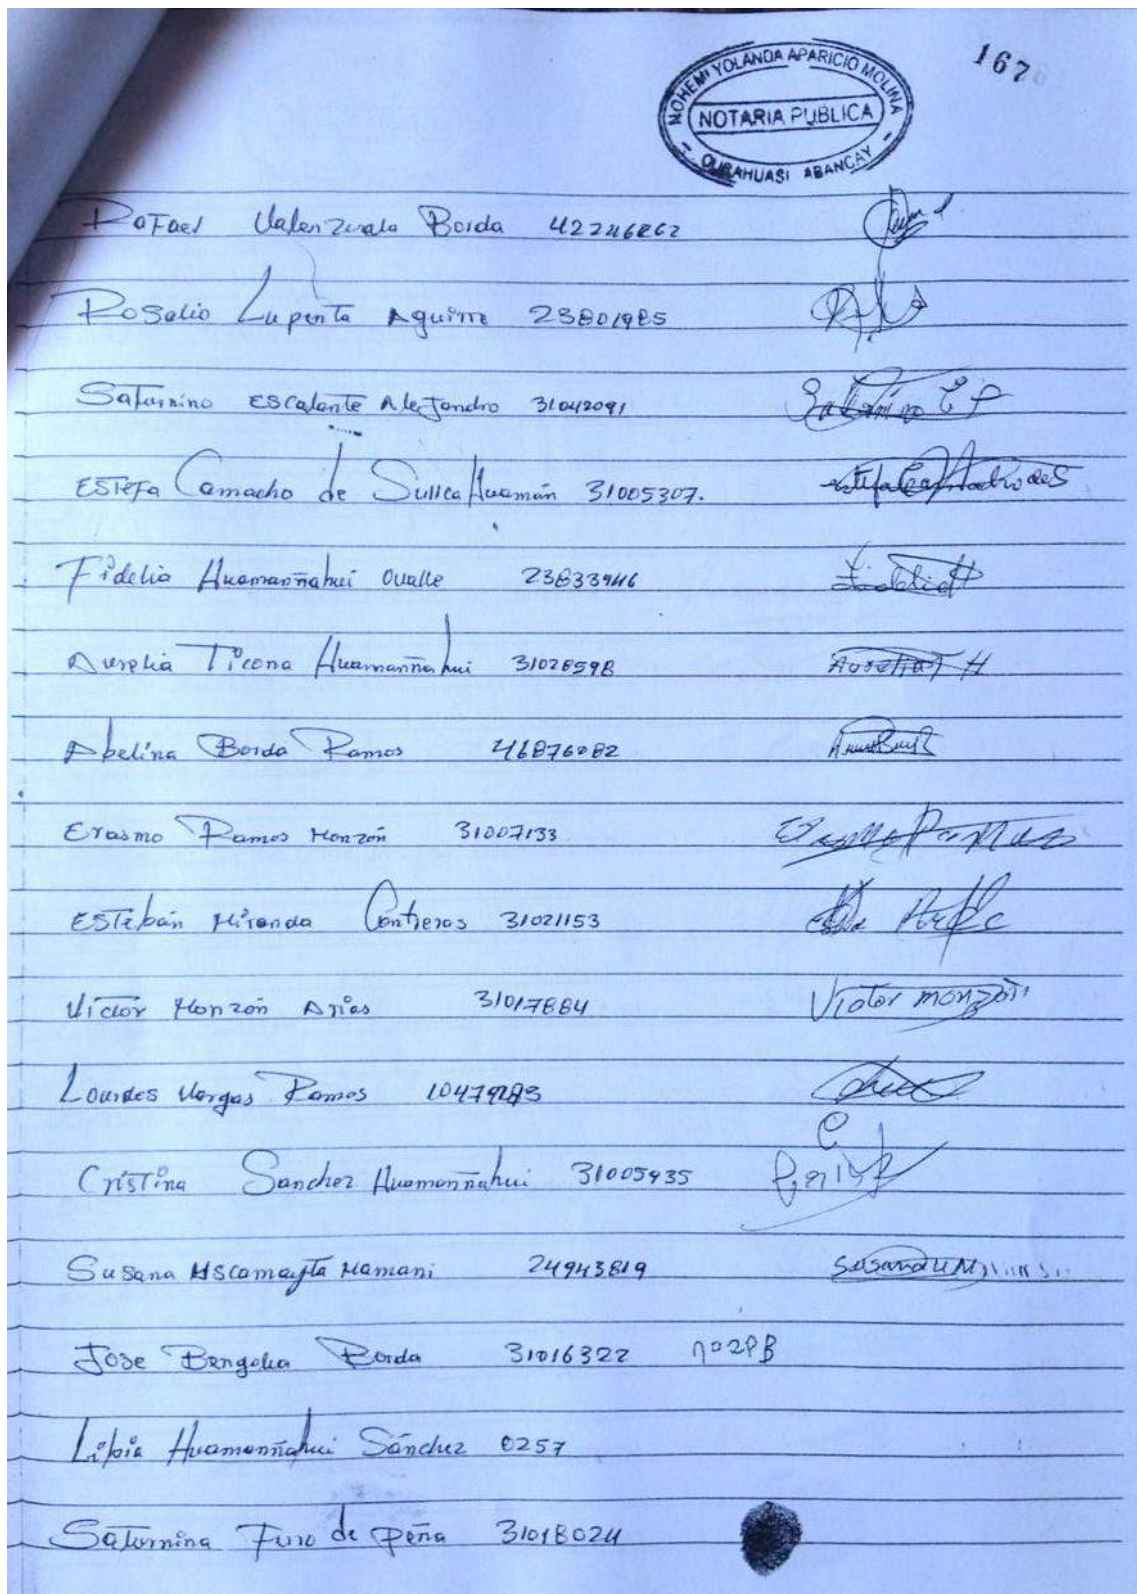 167
NOHEMI YOLANDA APARICIO MOLINA
NOTARIA PUBLICA
CURAHUASI ABANCAY
Rafael Valenzuela Borda 42246862
Rosalio Lupinta Aguirre 23801985
Saturnino Escalante Alejandro 31042091
Saturnino E
ESTEFA Camacho de Sullca Huamán 31005307.
Fidelia Huamanñahui Ovalle 23833946
Fidelia H
Aurelia Ticona Huamanñahui 31028598
Aurelia T H
Abelina Borda Ramos 46876082
Erasmo Ramos Monzón 31007133
Esteban Miranda Contreras 31021153
Victor Monzón Arias 31017884
Victor monzon
Lourdes Vargas Ramos
Cristina Sanchez Huamanñahui 31005935
Susana Ascamayta Mamani 24943819
Jose Bengolea Borda 31016322
Libia Huamanñahui Sánchez 0257
Saturnina Furo de Peña 31018024